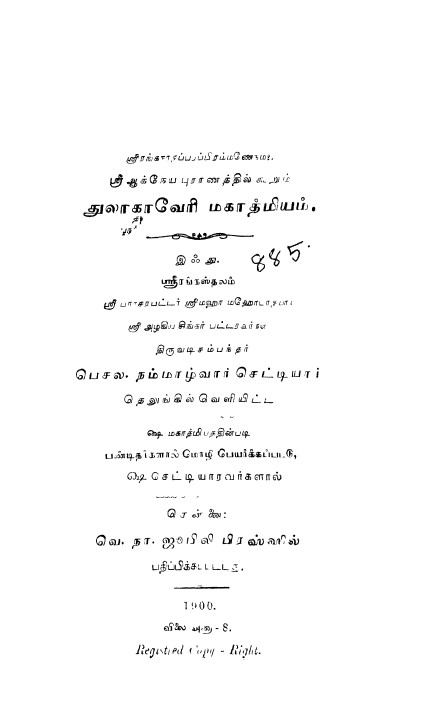 ஸ்ரீரங்க
ஸ்ரீ ஆக்நேய புராணத்தில் கூறும்
துலாகாவேரி மகாத்மியம்.
885.
இஃது
ஸ்ரீரங்கஸ்தலம்
ஸ்ரீ பராசரபட்டர் ஸ்ரீமஹா
ஸ்ரீ அழகிய சிங்கர் பட்டரவர்கள்
திருவடிசம்பந்தர்
பெசல. நம்மாழ்வார் செட்டியார்
தெலுங்கில் வெளியிட்ட
௸ மகாத்மியத்தின்படி
பண்டிதர்களால் மொழி பெயர்க்கப்பட்டு,
௸ செட்டியாரவர்களால்
சென்னை:
வெ. நா. ஜூபிலி பிரஸ்ஸில்
பதிப்பிக்கப்பட்டது.
1900.
விலை அணா - 8.
Registred Copy - Right.